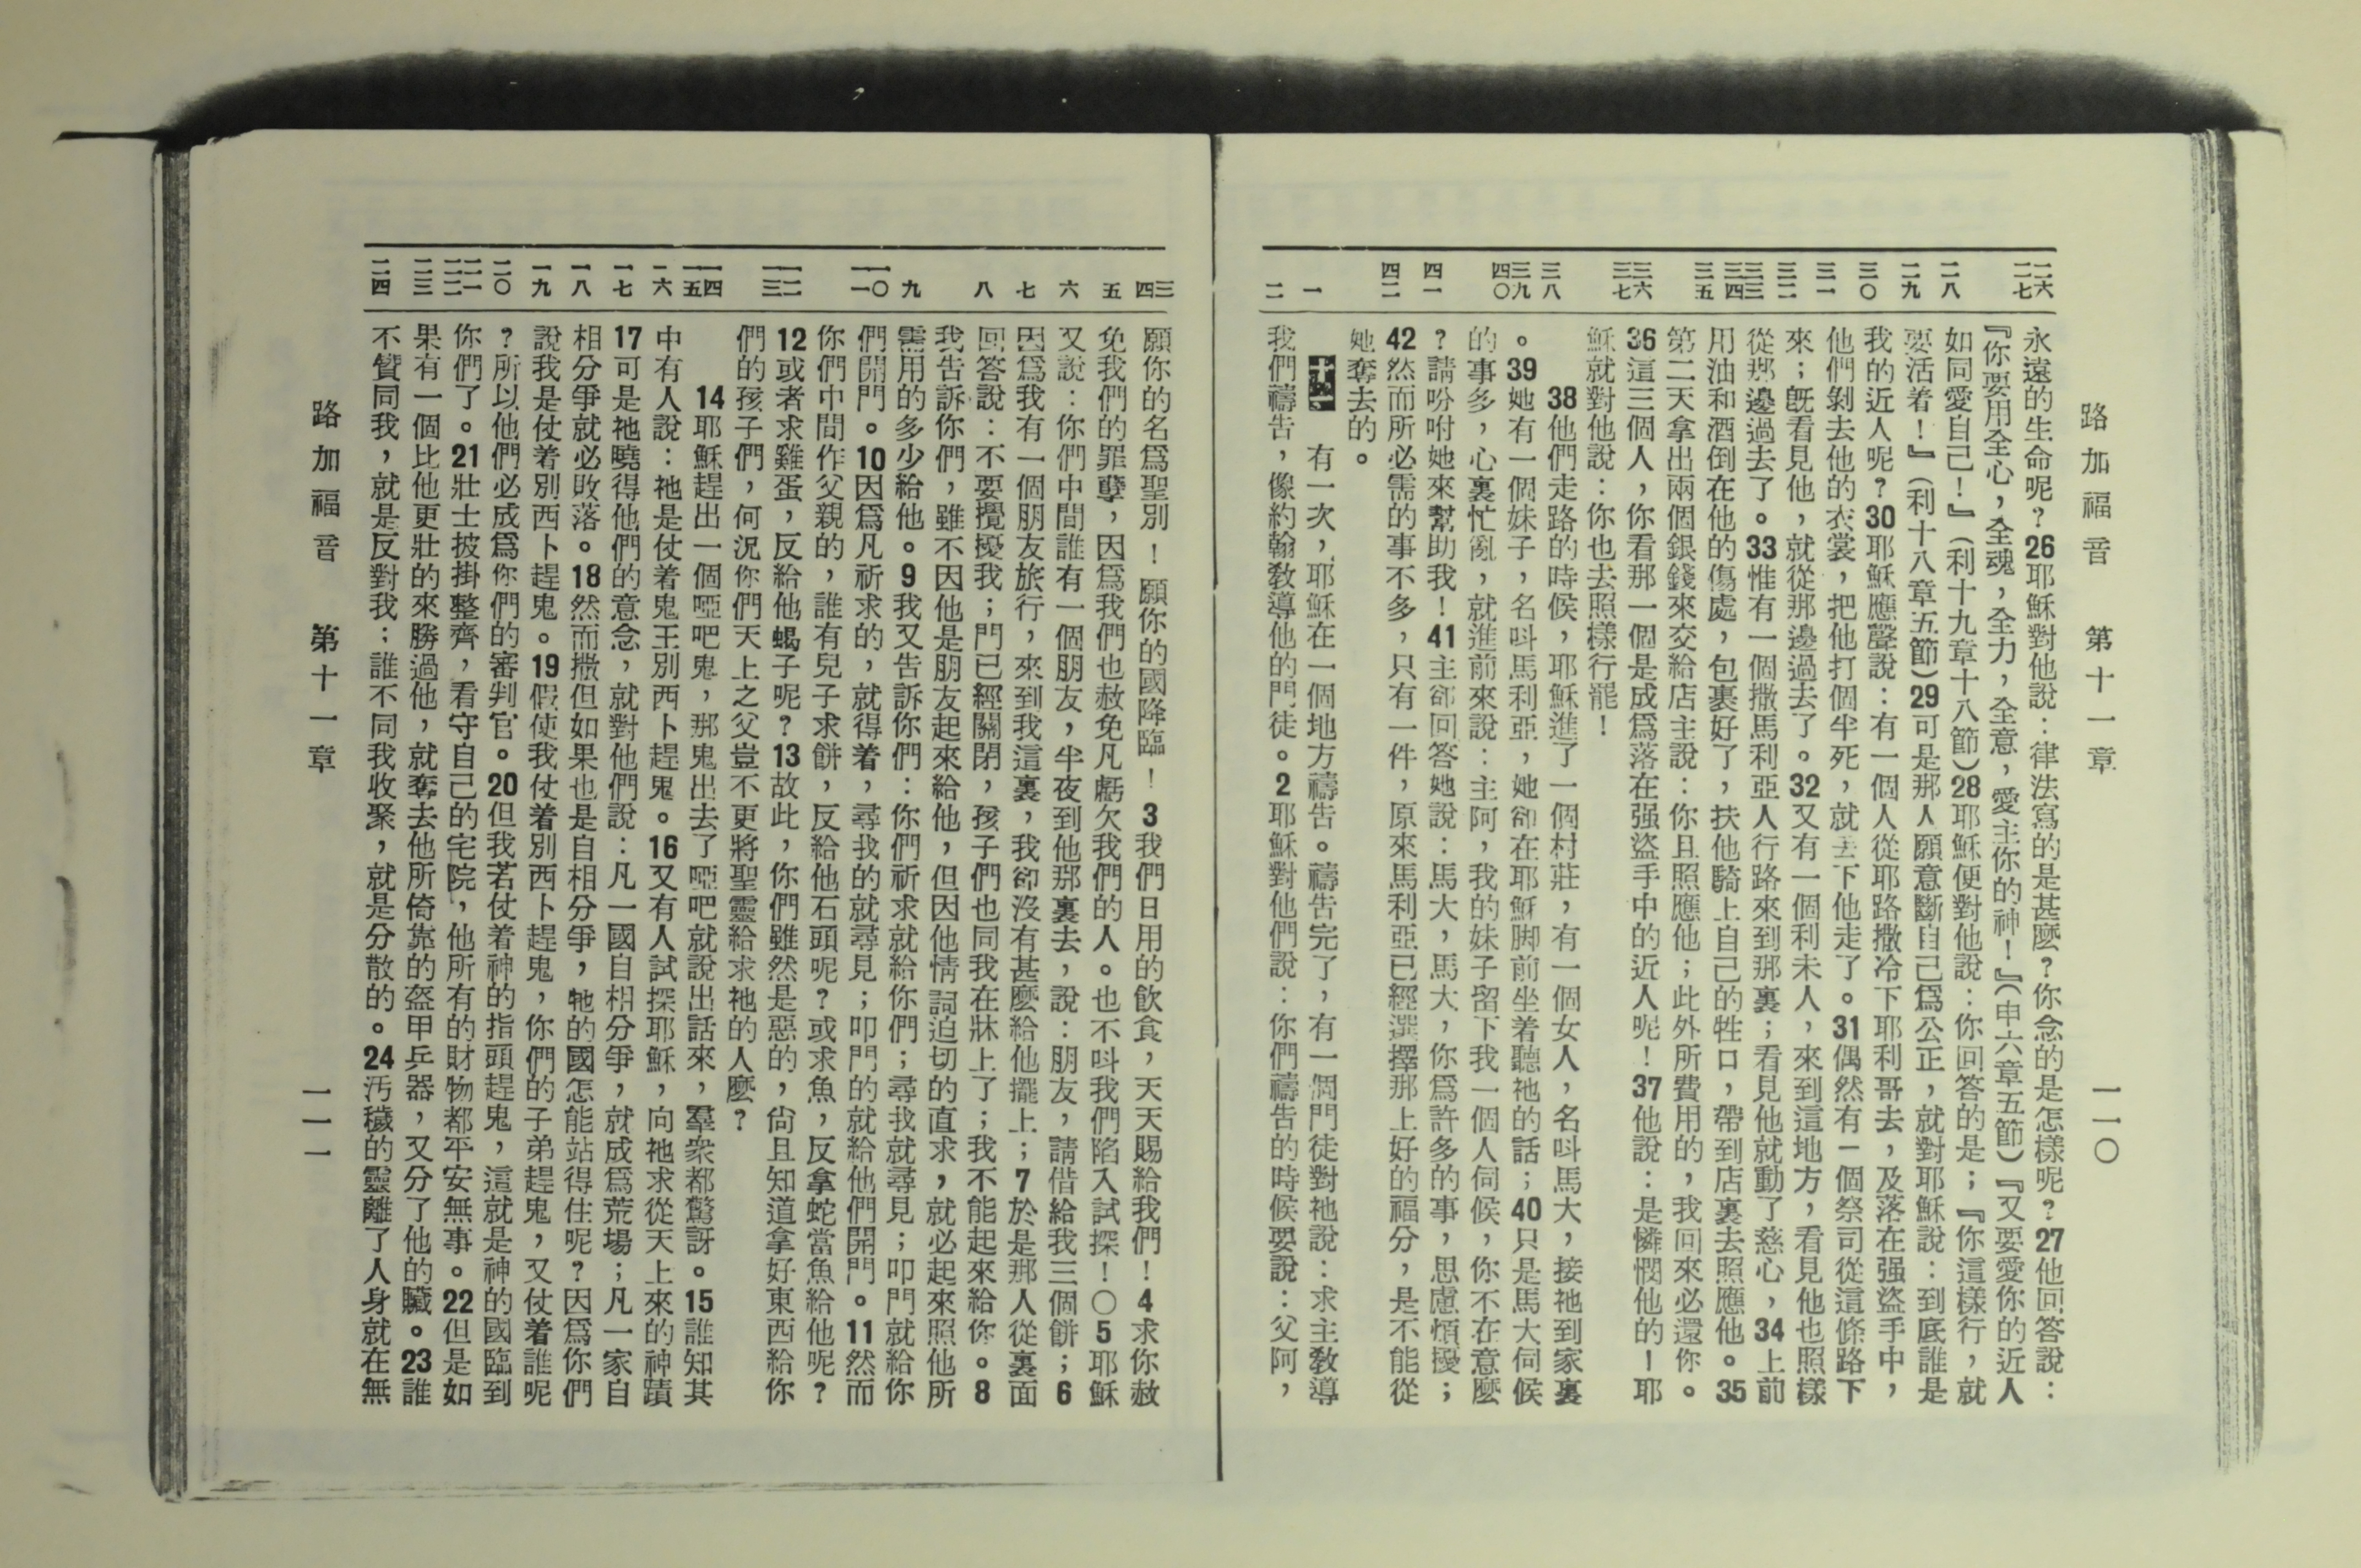 路加福音　第十一章　一一〇
二六 二七 二八 二九 三〇 三一 三二 三三 三四 三五 三六 三七 三八 三九 四〇 四一 四二 一 二
永遠的生命呢？26耶穌對他說：律法寫的是甚麼？你念的是怎樣呢？27他回答說：
『你要用全心，全魂，全力，全意，愛主你的神！』（申六章五節）『又要愛你的近人
如同愛自己！』（利十九章十八節）28耶穌便對他說：你回答的是；『你這樣行，就
要活着！』（利十八章五節）29可是那人願意斷自己爲公正，就對耶穌說：到底誰是
我的近人呢？30耶穌應聲說：有一個人從耶路撒冷下耶利哥去，及落在强盜手中，
他們剝去他的衣裳，把他打個半死，就丟下他走了。31偶然有一個祭司從這條路下
來；旣看見他，就從那邊過去了。32又有一個利未人，來到這地方，看見他也照樣
從那邊過去了。33惟有一個撒馬利亞人行路來到那裏；看見他就動了慈心，34上前
用油和酒倒在他的傷處，包裹好了，扶他騎上自己的牲口，帶到店裏去照應他。35
第二天拿出兩個銀錢來交給店主說：你且照應他；此外所費用的，我回來必還你。
36這三個人，你看那一個是成爲落在强盜手中的近人呢！37他說：是憐憫他的！耶
穌就對他說：你也去照樣行罷！
38他們走路的時候，耶穌進了一個村莊，有一個女人，名叫馬大，接祂到家裏
。39她有一個妹子，名叫馬利亞，她卻在耶穌脚前坐着聽祂的話；40只是馬大伺候
的事多，心裏忙亂，就進前來說：主阿，我的妹子留下我一個人伺候，你不在意麼
？請吩咐她來幫助我！41主卻回答她說：馬大，馬大，你爲許多的事，思慮煩擾；
42然而所必需的事不多，只有一件，原來馬利亞已經選擇那上好的福分，是不能從
她奪去的。
十一　有一次，耶穌在一個地方禱告。禱告完了，有一個門徒對祂說：求主敎導
我們禱告，像約翰敎導他的門徒。2耶穌對他們說：你們禱告的時候要說：父阿，
三 四 五 六 七 八 九 一〇 一一 一二 一三 一四 一五 一六 一七 一八 一九 二〇 二一 二二 二三 二四
願你的名爲聖別！願你的國降臨！3我們日用的飲食，天天賜給我們！4求你赦
免我們的罪孽，因爲我們也赦免凡虧欠我們的人。也不叫我們陷入試探！〇5耶穌
又說：你們中間誰有一個朋友，半夜到他那裏去，說：朋友，請借給我三個餅；6
因爲我有一個朋友旅行，來到我這裏，我卻沒有甚麼給他擺上；7於是那人從裏面
回答說：不要攪擾我；門已經關閉，孩子們也同我在牀上了；我不能起來給你。8
我告訴你們，雖不因他是朋友起來給他，但因他情詞迫切的直求，就必起來照他所
需用的多少給他。9我又告訴你們：你們祈求就給你們；尋我就尋見；叩門就給你
們開門。10因爲凡祈求的，就得着，尋我的就尋見；叩門的就給他們開門。11然而
你們中間作父親的，誰有兒子求餅，反給他石頭呢？或求魚，反拿蛇當魚給他呢？
12或者求雞蛋，反給他蝎子呢？13故此，你們雖然是惡的，尙且知道拿好東西給你
們的孩子們，何況你們天上之父豈不更將聖靈給求祂的人麼？
14耶穌趕出一個啞吧鬼，那鬼出去了啞吧就說出話來，羣衆都驚訝。15誰知其
中有人說：祂是仗着鬼王別西卜趕鬼。16又有人試探耶穌，向祂求從天上來的神蹟
17可是祂曉得他們的意念，就對他們說：凡一國自相分爭，就成爲荒場；凡一家自
相分爭就必敗落。18然而撒但如果也是自相分爭，牠的國怎能站得住呢？因爲你們
說我是仗着別西卜趕鬼。19假使我仗着別西卜趕鬼，你們的子弟趕鬼，又仗着誰呢
？所以他們必成爲你們的審判官。20但我若仗着神的指頭趕鬼，這就是神的國臨到
你們了。21壯士披掛整齊，看守自己的宅院，他所有的財物都平安無事。22但是如
果有一個比他更壯的來勝過他，就奪去他所倚靠的盔甲兵器，又分了他的贓。23誰
不贊同我，就是反對我；誰不同我收聚，就是分散的。24汚穢的靈離了人身就在無
路加福音　第十一章　一一一